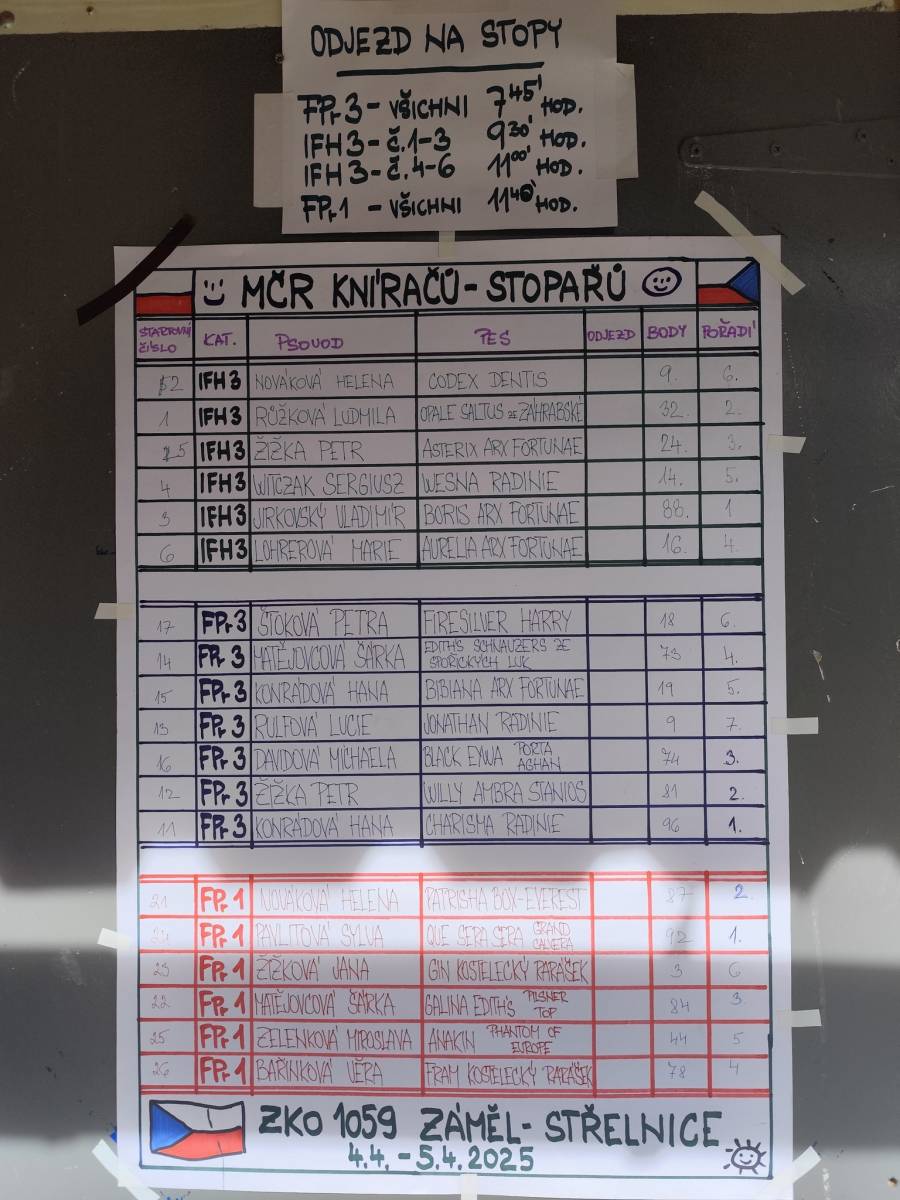 ODJEZD NA STOPY
FPr 3 - VŠICHNI 7 45' HOD.
IFH 3 - Č. 1-3 9 30' HOD.
IFH 3 - Č. 4-6 11 00' HOD.
FPr 1 - VŠICHNI HOD.
MČR KNÍRAČŮ - STOPAŘŮ
STARTOVNÍ ČÍSLO KAT. PSOVOD PES ODJEZD BODY POŘADÍ
2 IFH 3 NOVÁKOVÁ HELENA CODEX DENTIS 9. 6.
1 IFH 3 RŮŽKOVÁ LUDMILA OPALE SALTUS ZE ZÁHRABSKÉ 32. 2.
5 IFH 3 ŽIŽKA PETR ASTERIX ARX FORTUNAE 24. 3.
4 IFH 3 WITCZAK SERGIUSZ WESNA RADINIE 14. 5.
3 IFH 3 JIRKOVSKÝ VLADIMÍR BORIS ARX FORTUNAE 88. 1
6 IFH 3 LOHREROVÁ MARIE AURELIA ARX FORTUNAE 16. 4.
17 FPr 3 ŠTOKOVÁ PETRA FIRESILVER HARRY 18 6.
14 FPr 3 MATĚJOVCOVÁ ŠÁRKA EDITH'S SCHNAUZERS ZE SPOŘICKÝCH LUK 73 4.
15 FPr 3 KONRÁDOVÁ HANA BIBIANA ARX FORTUNAE 19 5.
13 FPr 3 RULFOVÁ LUCIE JONATHAN RADINIE 9 7.
16 FPr 3 DAVIDOVÁ MICHAELA BLACK EYWA PORTA AGHAN 74 3.
12 FPr 3 ŽIŽKA PETR WILLY AMBRA STANIOS 81 2.
11 FPr 3 KONRÁDOVÁ HANA CHARISMA RADINIE 96 1.
21 FPr 1 NOVÁKOVÁ HELENA PATRISHA BOX-EVEREST 87 2.
24 FPr 1 PAVLITOVÁ SYLVA QUE SERA SERA GRAND CALVERA 92 1.
23 FPr 1 ŽIŽKOVÁ JANA GIN KOSTELECKÝ PARÁŠEK 3 6
22 FPr 1 MATĚJOVCOVÁ ŠÁRKA GALINA EDITH'S PILSNER TOP 84 3.
25 FPr 1 ZELENKOVÁ MIROSLAVA ANAKIN PHANTOM OF EUROPE 44 5
26 FPr 1 BAŘINKOVÁ VĚRA FRAM KOSTELECKÝ PARÁŠEK 78 4
ZKO 1059 ZÁMĚL - STŘELNICE
4.4. - 5.4. 2025